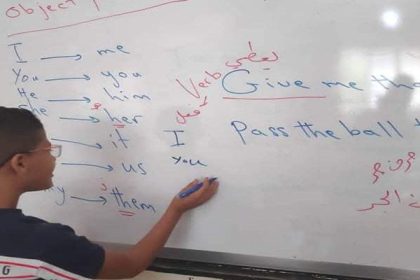 Object
I → me
You → you
He → him
her
→ it
→ us
→ them
I
You
Verb
فعل
يعطي
Give me the
Pass the ball